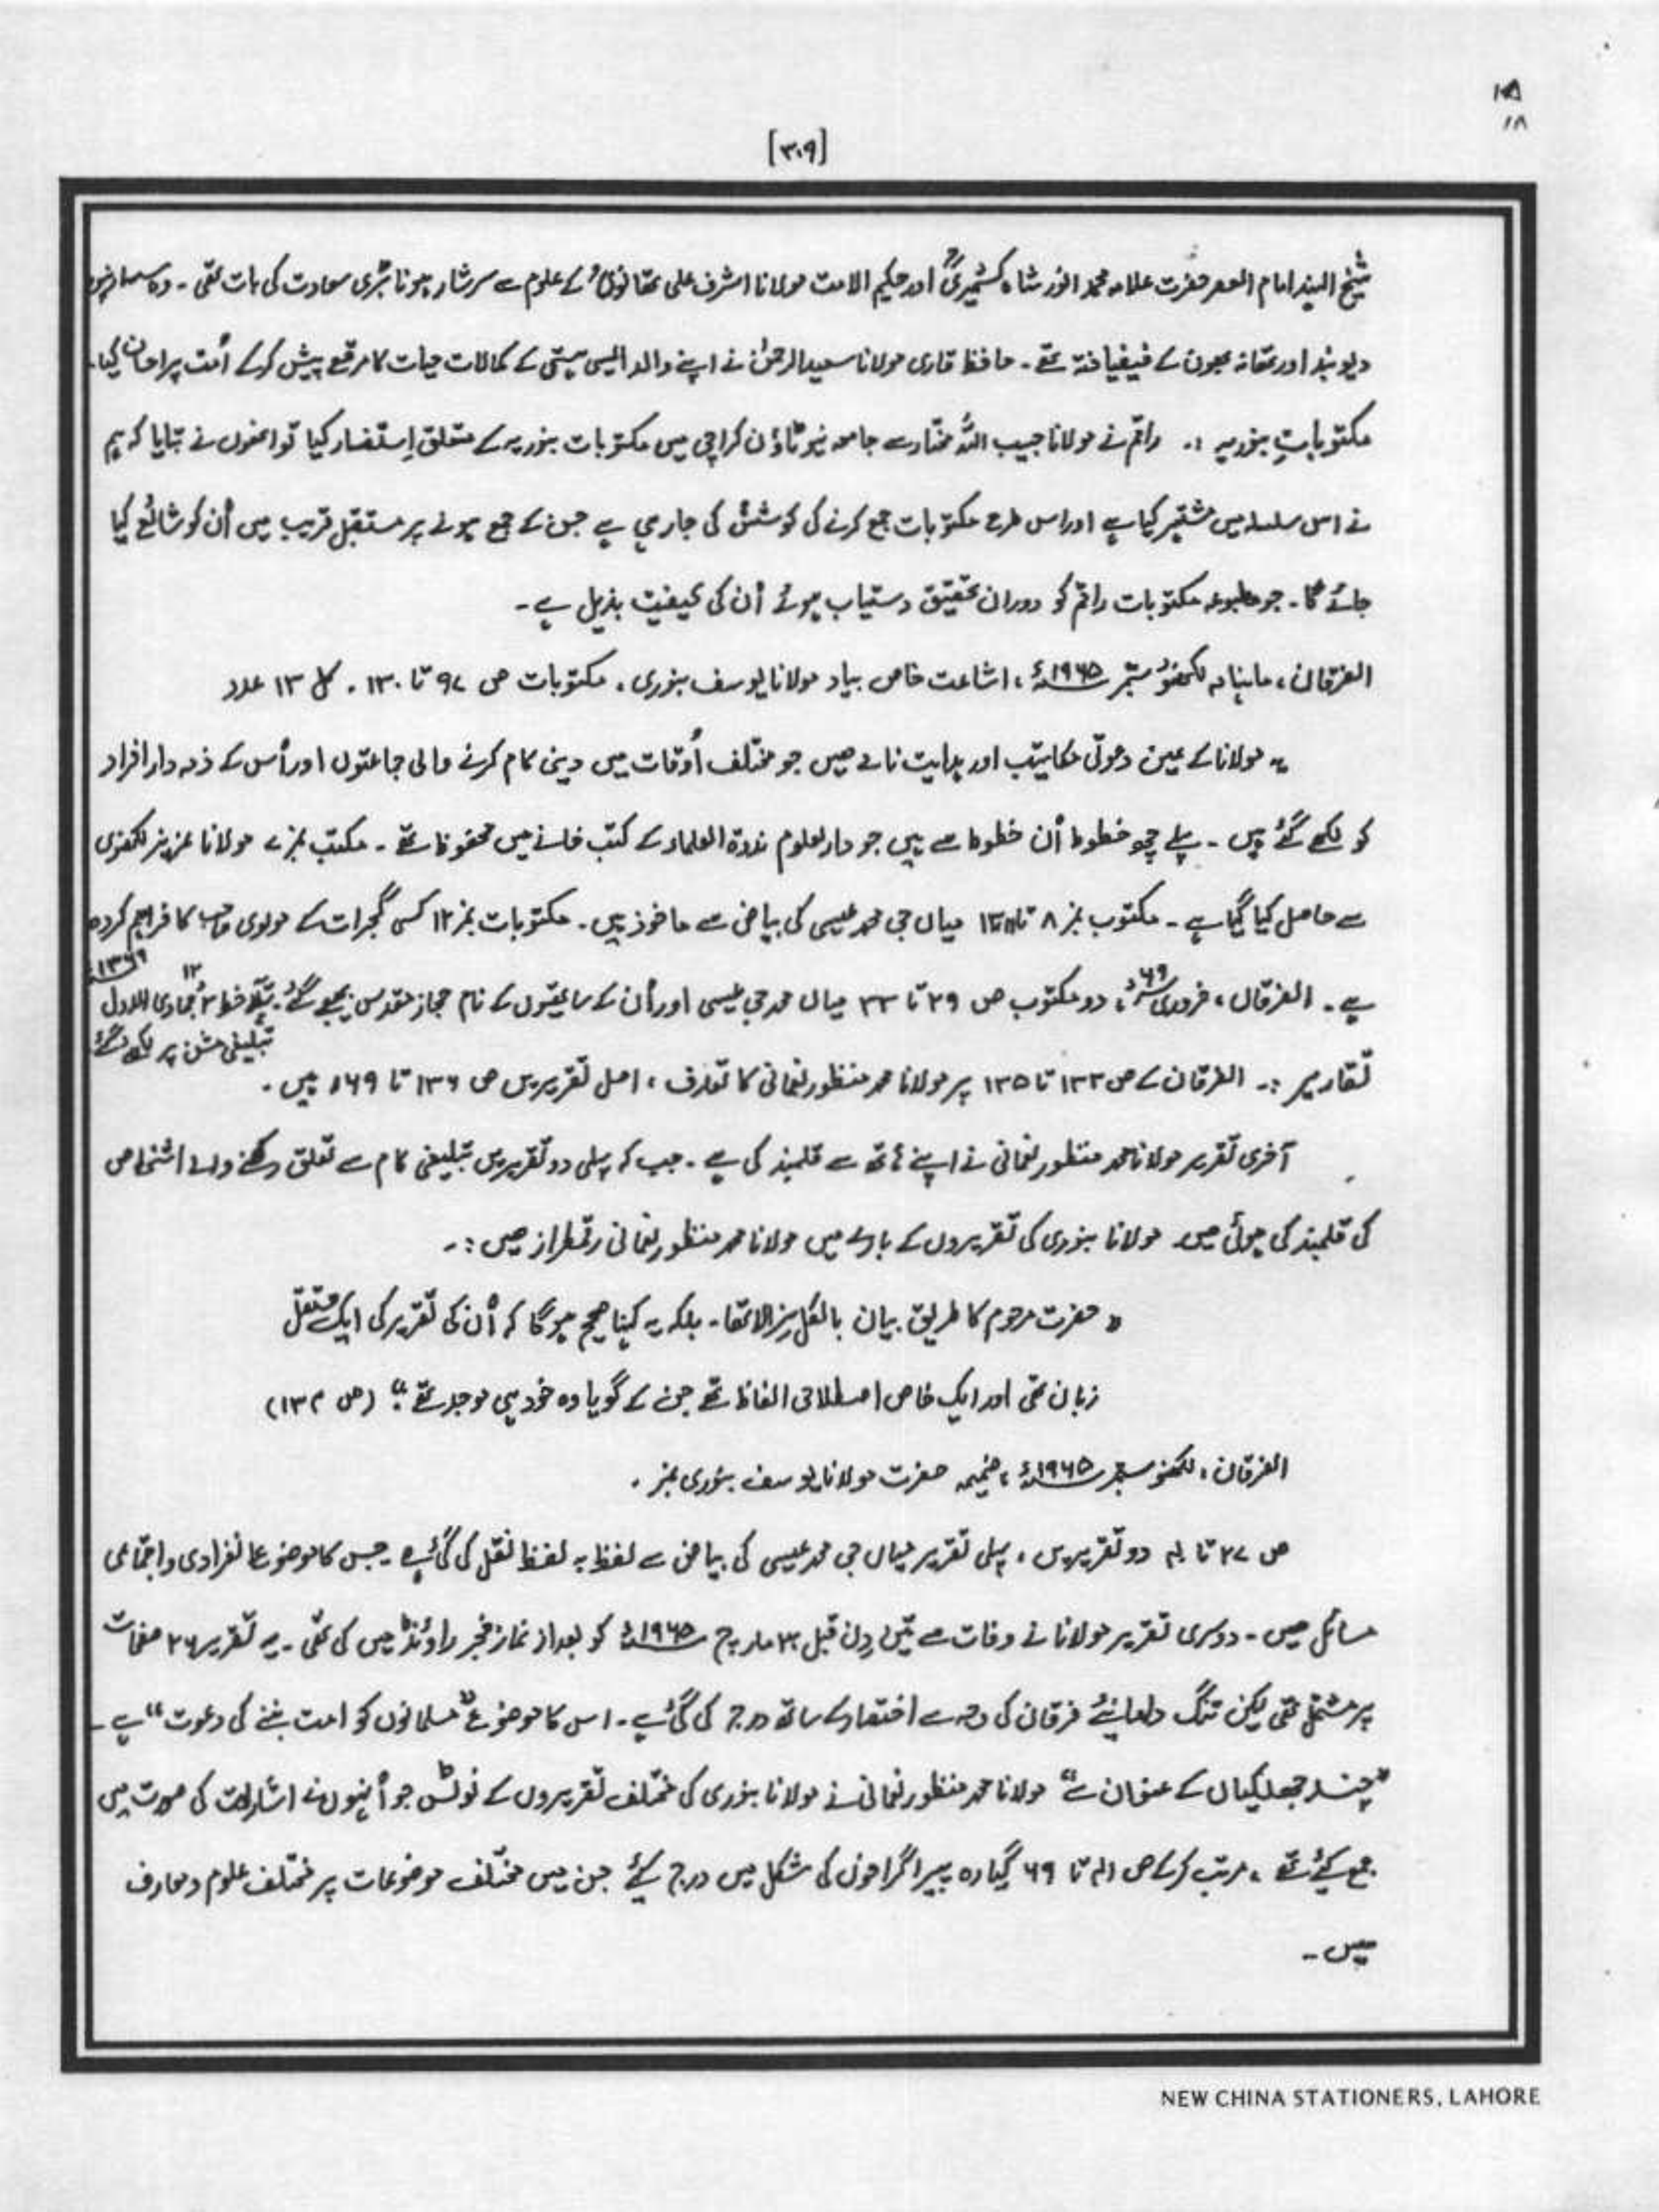 ۱۸
[۳۰۹]
شیخ الہند امام العصر حضرت علامہ محمد انور شاہ کشمیریؒ اور حکیم الامت مولانا اشرف علی تھانویؒ کے علوم سے سرشار ہونا بڑی سعادت کی بات تھی۔ وہ سہارنپور
دیوبند اور تھانہ بھون کے فیضیافتہ تھے۔ حافظ قاری مولانا سعید الرحمٰن نے اپنے والد ایسی ہستی کے کمالات حیات کا مرقع پیش کرکے اُمت پر احسان کیا۔
مکتوباتِ بنوریہ :۔ راقم نے مولانا حبیب اللہ مختار سے جامعہ نیو ٹاؤن کراچی میں مکتوبات بنوریہ کے متعلق اِستفسار کیا تو انھوں نے بتایا کہ ہم
نے اس سلسلہ میں مشتہر کیا ہے اور اس طرح مکتوبات جمع کرنے کی کوشش کی جارہی ہے جن کے جمع ہونے پر مستقبل قریب میں اُن کو شائع کیا
جائے گا۔ جو مطبوعہ مکتوبات راقم کو دوران تحقیق دستیاب ہوئے اُن کی کیفیت بذیل ہے۔
الفرقان، ماہنامہ لکھنؤ ستمبر ۱۹۶۵ء، اشاعت خاص بیاد مولانا یوسف بنوری۔ مکتوبات ص ۹۷ تا ۱۳۰۔ کل ۱۳ عدد
یہ مولانا کے عین دعوتی مکاتیب اور ہدایت نامے ہیں جو مختلف اَوقات میں دینی کام کرنے والی جماعتوں اور اُس کے ذمہ دار افراد
کو لکھے گئے ہیں۔ پہلے چھ خطوط اُن خطوط سے ہیں جو دارالعلوم ندوۃ العلماء کے کتب خانے میں محفوظ تھے۔ مکتب نمبر ۷ مولانا عزیز لکھنوی
سے حاصل کیا گیا ہے۔ مکتوب نمبر ۸ تا میاں جی محمد عیسی کی بیاض سے ماخوذ ہیں۔ مکتوبات نمبر ۱۲ کسی گجرات کے مولوی صاحب کا فراہم کردہ
ہے۔ الفرقان، فروری ۶۹ء، دو مکتوب ص ۲۹ تا ۳۳ میاں محمد جی عیسی اور اُن کے ساتھیوں کے نام حجاز مقدس بھیجے گئے۔ پہلا خط جمادی الاول
تبلیغی مشن پر لکھے گئے
تقاریر :۔ الفرقان کے ص ۱۳۳ تا ۱۳۵ پر مولانا محمد منظور نعمانی کا تعارف، اصل تقریریں ص ۱۳۶ تا ۱۶۹ ہیں۔
آخری تقریر مولانا محمد منظور نعمانی نے اپنے ہاتھ سے قلمبند کی ہے۔ جب کہ پہلی دو تقریریں تبلیغی کام سے تعلق رکھنے والے اشخاص
کی قلمبند کی ہوئی ہیں۔ مولانا بنوری کی تقریروں کے بارے میں مولانا محمد منظور نعمانی رقمطراز ہیں :۔
" حضرت مرحوم کا طریق بیان بالکل نرالا تھا۔ بلکہ یہ کہنا صحیح ہوگا کہ اُن کی تقریر کی ایک مستقل
زبان تھی اور ایک خاص اصطلاحی الفاظ تھے جن کے گویا وہ خود ہی موجد تھے۔" (ص ۱۳۴)
الفرقان، لکھنؤ ستمبر ۱۹۶۵ء، ضمیمہ حضرت مولانا یوسف بنوری نمبر۔
ص ۲۷ تا ۴۰ دو تقریریں، پہلی تقریر میاں جی محمد عیسی کی بیاض سے لفظ بہ لفظ نقل کی گئی ہے۔ جس کا موضوع انفرادی و اجتماعی
مسائل ہیں۔ دوسری تقریر مولانا نے وفات سے تین دن قبل ۳۰ مارچ ۱۹۶۵ء کو بعد از نماز فجر راونڈ میں کی تھی۔ یہ تقریر ۲۶ صفحات
پر مشتمل تھی لیکن تنگ دامانئے فرقان کی وجہ سے اختصار کے ساتھ درج کی گئی ہے۔ اس کا موضوع "مسلمانوں کو امت بننے کی دعوت" ہے۔
"چند جھلکیاں کے عنوان سے" مولانا محمد منظور نعمانی نے مولانا بنوری کی مختلف تقریروں کے نوٹس جو اُنہوں نے اشارات کی صورت میں
جمع کیے تھے، مرتب کرکے ص ۴۱ تا ۶۹ گیارہ پیراگرافوں کی شکل میں درج کیے جن میں مختلف موضوعات پر مختلف علوم و معارف
ہیں۔
NEW CHINA STATIONERS, LAHORE